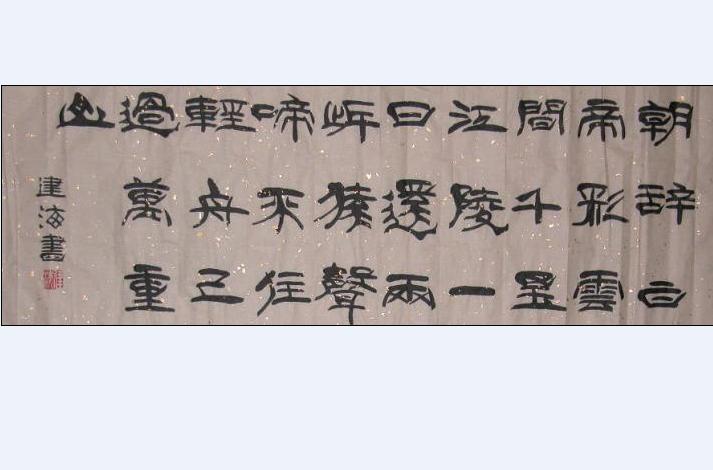 朝辞白
帝彩雲
間千里
江陵一
日還兩
岸猿聲
啼不住
輕舟已
過萬重
山
建海書